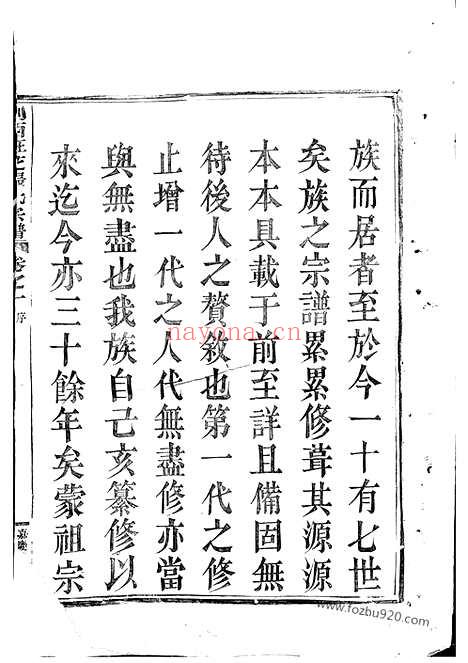 族而居者至於今一十有七世
矣族之宗譜累累修葺其源源
本本具載于前至詳且備固無
待後人之贅敘也第一代之修
止增一代之人代無盡修亦當
與無盡也我族自己亥纂修以
來迄今亦三十餘年矣蒙祖宗
張氏宗譜 卷之一 序
嘉慶
nayona.cn
www.fozbu920.com